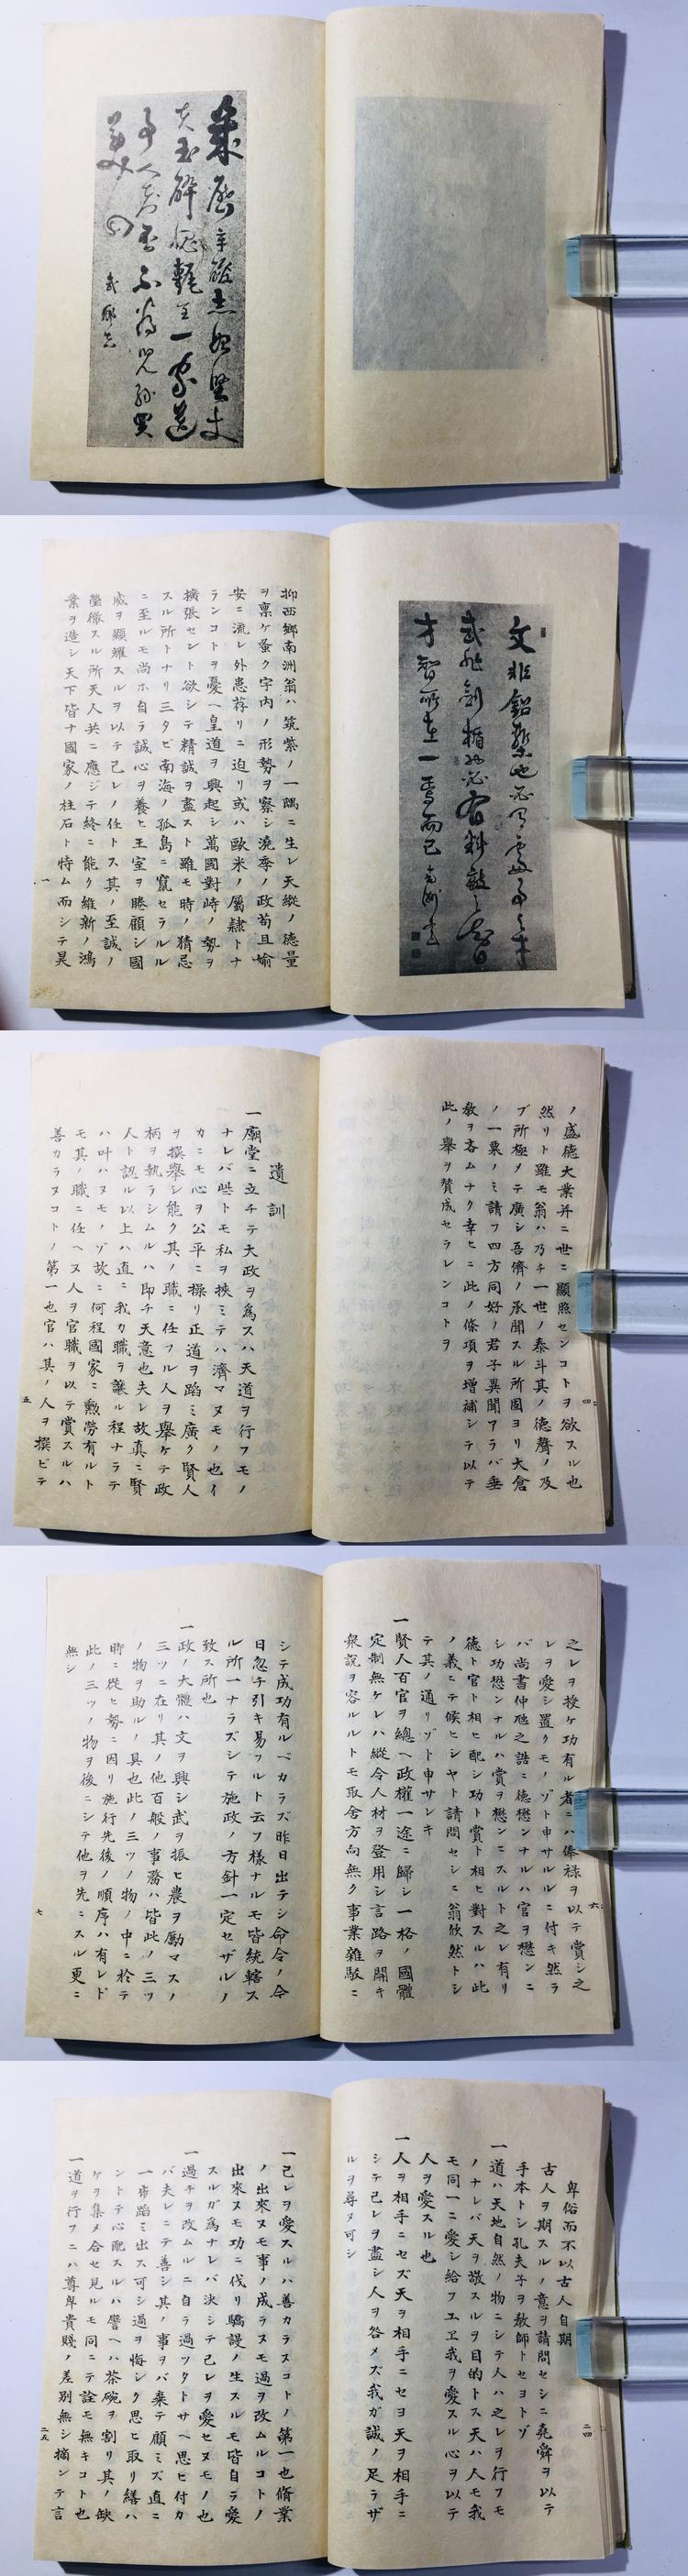 幾歴辛酸志始堅丈
夫玉碎愧甎全一家遺
事人知否不爲兒孫買
美田
武郷兄
文非鉛槧也必有處事之才
武非劍楯也必有料敵之智
才智所在一焉而已 南洲書
抑西郷南洲翁ハ筑紫ノ一隅ニ生レ天縱ノ德量
ヲ稟ケ蚤ク宇内ノ形勢ヲ察シ澆季ノ政苟且媮
安ニ流レ外患荐リニ迫リ或ハ歐米ノ屬隷トナ
ランコトヲ憂ヘ皇道ヲ興起シ萬國對峙ノ勢ヲ
擴張セント欲シテ精誠ヲ盡スト雖モ時ノ猜忌
スル所トナリ三タビ南海ノ孤島ニ竄セラルル
ニ至ルモ尚ホ自ラ誠心ヲ養ヒ王室ヲ睠顧シ國
威ヲ顯耀スルヲ以テ己レノ任トス其ノ至誠ノ
瑩徹スル所天人共ニ應ジテ終ニ能ク維新ノ鴻
業ヲ造シ天下皆ナ國家ノ柱石ト特ム而シテ昊
一
ノ盛德大業并ニ世ニ顯照センコトヲ欲スル也
然リト雖モ翁ハ乃チ一世ノ泰斗其ノ德聲ノ及
ブ所極メテ廣シ吾儕ノ承聞スル所固ヨリ大倉
ノ一粟ノミ請フ四方同好ノ君子異聞アラバ垂
敎ヲ吝ムナク幸ヒニ此ノ條項ヲ增補シテ以テ
此ノ舉ヲ贊成セラレンコトヲ
四
遺訓
一廟堂ニ立チテ大政ヲ爲スハ天道ヲ行フモノ
ナレバ些トモ私ヲ挾ミテハ濟マヌモノ也イ
カニモ心ヲ公平ニ操リ正道ヲ蹈ミ廣ク賢人
ヲ撰舉シ能ク其ノ職ニ任フル人ヲ舉ケテ政
柄ヲ執ラシムルハ即チ天意也夫レ故真ニ賢
人ト認ル以上ハ直ニ我カ職ヲ讓ル程ナラテ
ハ叶ハヌモノゾ故ニ何程國家ニ勲勞有ルト
モ其ノ職ニ任ヘヌ人ヲ官職ヲ以テ賞スルハ
善カラヌコトノ第一也官ハ其ノ人ヲ撰ビテ
五
之レヲ授ケ功有ル者ニハ俸禄ヲ以テ賞シ之
レヲ愛シ置クモノゾト申サルルニ付キ然ラ
バ尚書仲虺之誥ニ德懋ンナルハ官ヲ懋ンニ
シ功懋ンナルハ賞ヲ懋ンニスルト之レ有リ
德ト官ト相ヒ配シ功ト賞ト相ヒ對スルハ此
ノ義ニテ候ヒシヤト請問セシニ翁欣然トシ
テ其ノ通リゾト申サレキ
一賢人百官ヲ總ヘ政權一途ニ歸シ一格ノ國體
定制無ケレハ縱令人材ヲ登用シ言路ヲ開キ
衆說ヲ容ルルトモ取舍方向無ク事業雜駁ニ
六
シテ成功有ルベカラズ昨日出テシ命令ノ今
日忽チ引キ易フルト云フ樣ナルモ皆統轄ス
ル所一ナラズシテ施政ノ方針一定セザルノ
致ス所也
一政ノ大體ハ文ヲ興シ武ヲ振ヒ農ヲ勵マスノ
三ツニ在リ其ノ他百般ノ事務ハ皆此ノ三ツ
ノ物ヲ助ルノ具也此ノ三ツノ物ノ中ニ於テ
時ニ從ヒ勢ニ因リ施行先後ノ順序ハ有レド
此ノ三ツノ物ヲ後ニシテ他ヲ先ニスル更ニ
無シ
七
卑俗而不以古人自期
古人ヲ期スルノ意ヲ請問セシニ堯舜ヲ以テ
手本トシ孔夫子ヲ敎師トセヨトゾ
一道ハ天地自然ノ物ニシテ人ハ之レヲ行フモ
ノナレバ天ヲ敬スルヲ目的トス天ハ人モ我
モ同一ニ愛シ給フユヱ我ヲ愛スル心ヲ以テ
人ヲ愛スル也
一人ヲ相手ニセズ天ヲ相手ニセヨ天ヲ相手ニ
シテ己レヲ盡シ人ヲ咎メズ我ガ誠ノ足ラザ
ルヲ尋ヌ可シ
二四
一己レヲ愛スルハ善カラヌコトノ第一也脩業
ノ出來ヌモ事ノ成ラヌモ過ヲ改ムルコトノ
出來ヌモ功ニ伐リ驕謾ノ生スルモ皆自ラ愛
スルガ爲ナレバ決シテ己レヲ愛セヌモノ也
一過チヲ改ムルニ自ラ過ツタトサヘ思ヒ付カ
バ夫レニテ善シ其ノ事ヲバ棄テ顧ミズ直ニ
一歩蹈ミ出ス可シ過ヲ悔シク思ヒ取リ繕ハ
ントテ心配スルハ譬ヘハ茶碗ヲ割リ其ノ缺
ケヲ集メ合セ見ルモ同ニテ詮モ無キコト也
一道ヲ行フニハ尊卑貴賤ノ差別無シ摘ンテ言
二五